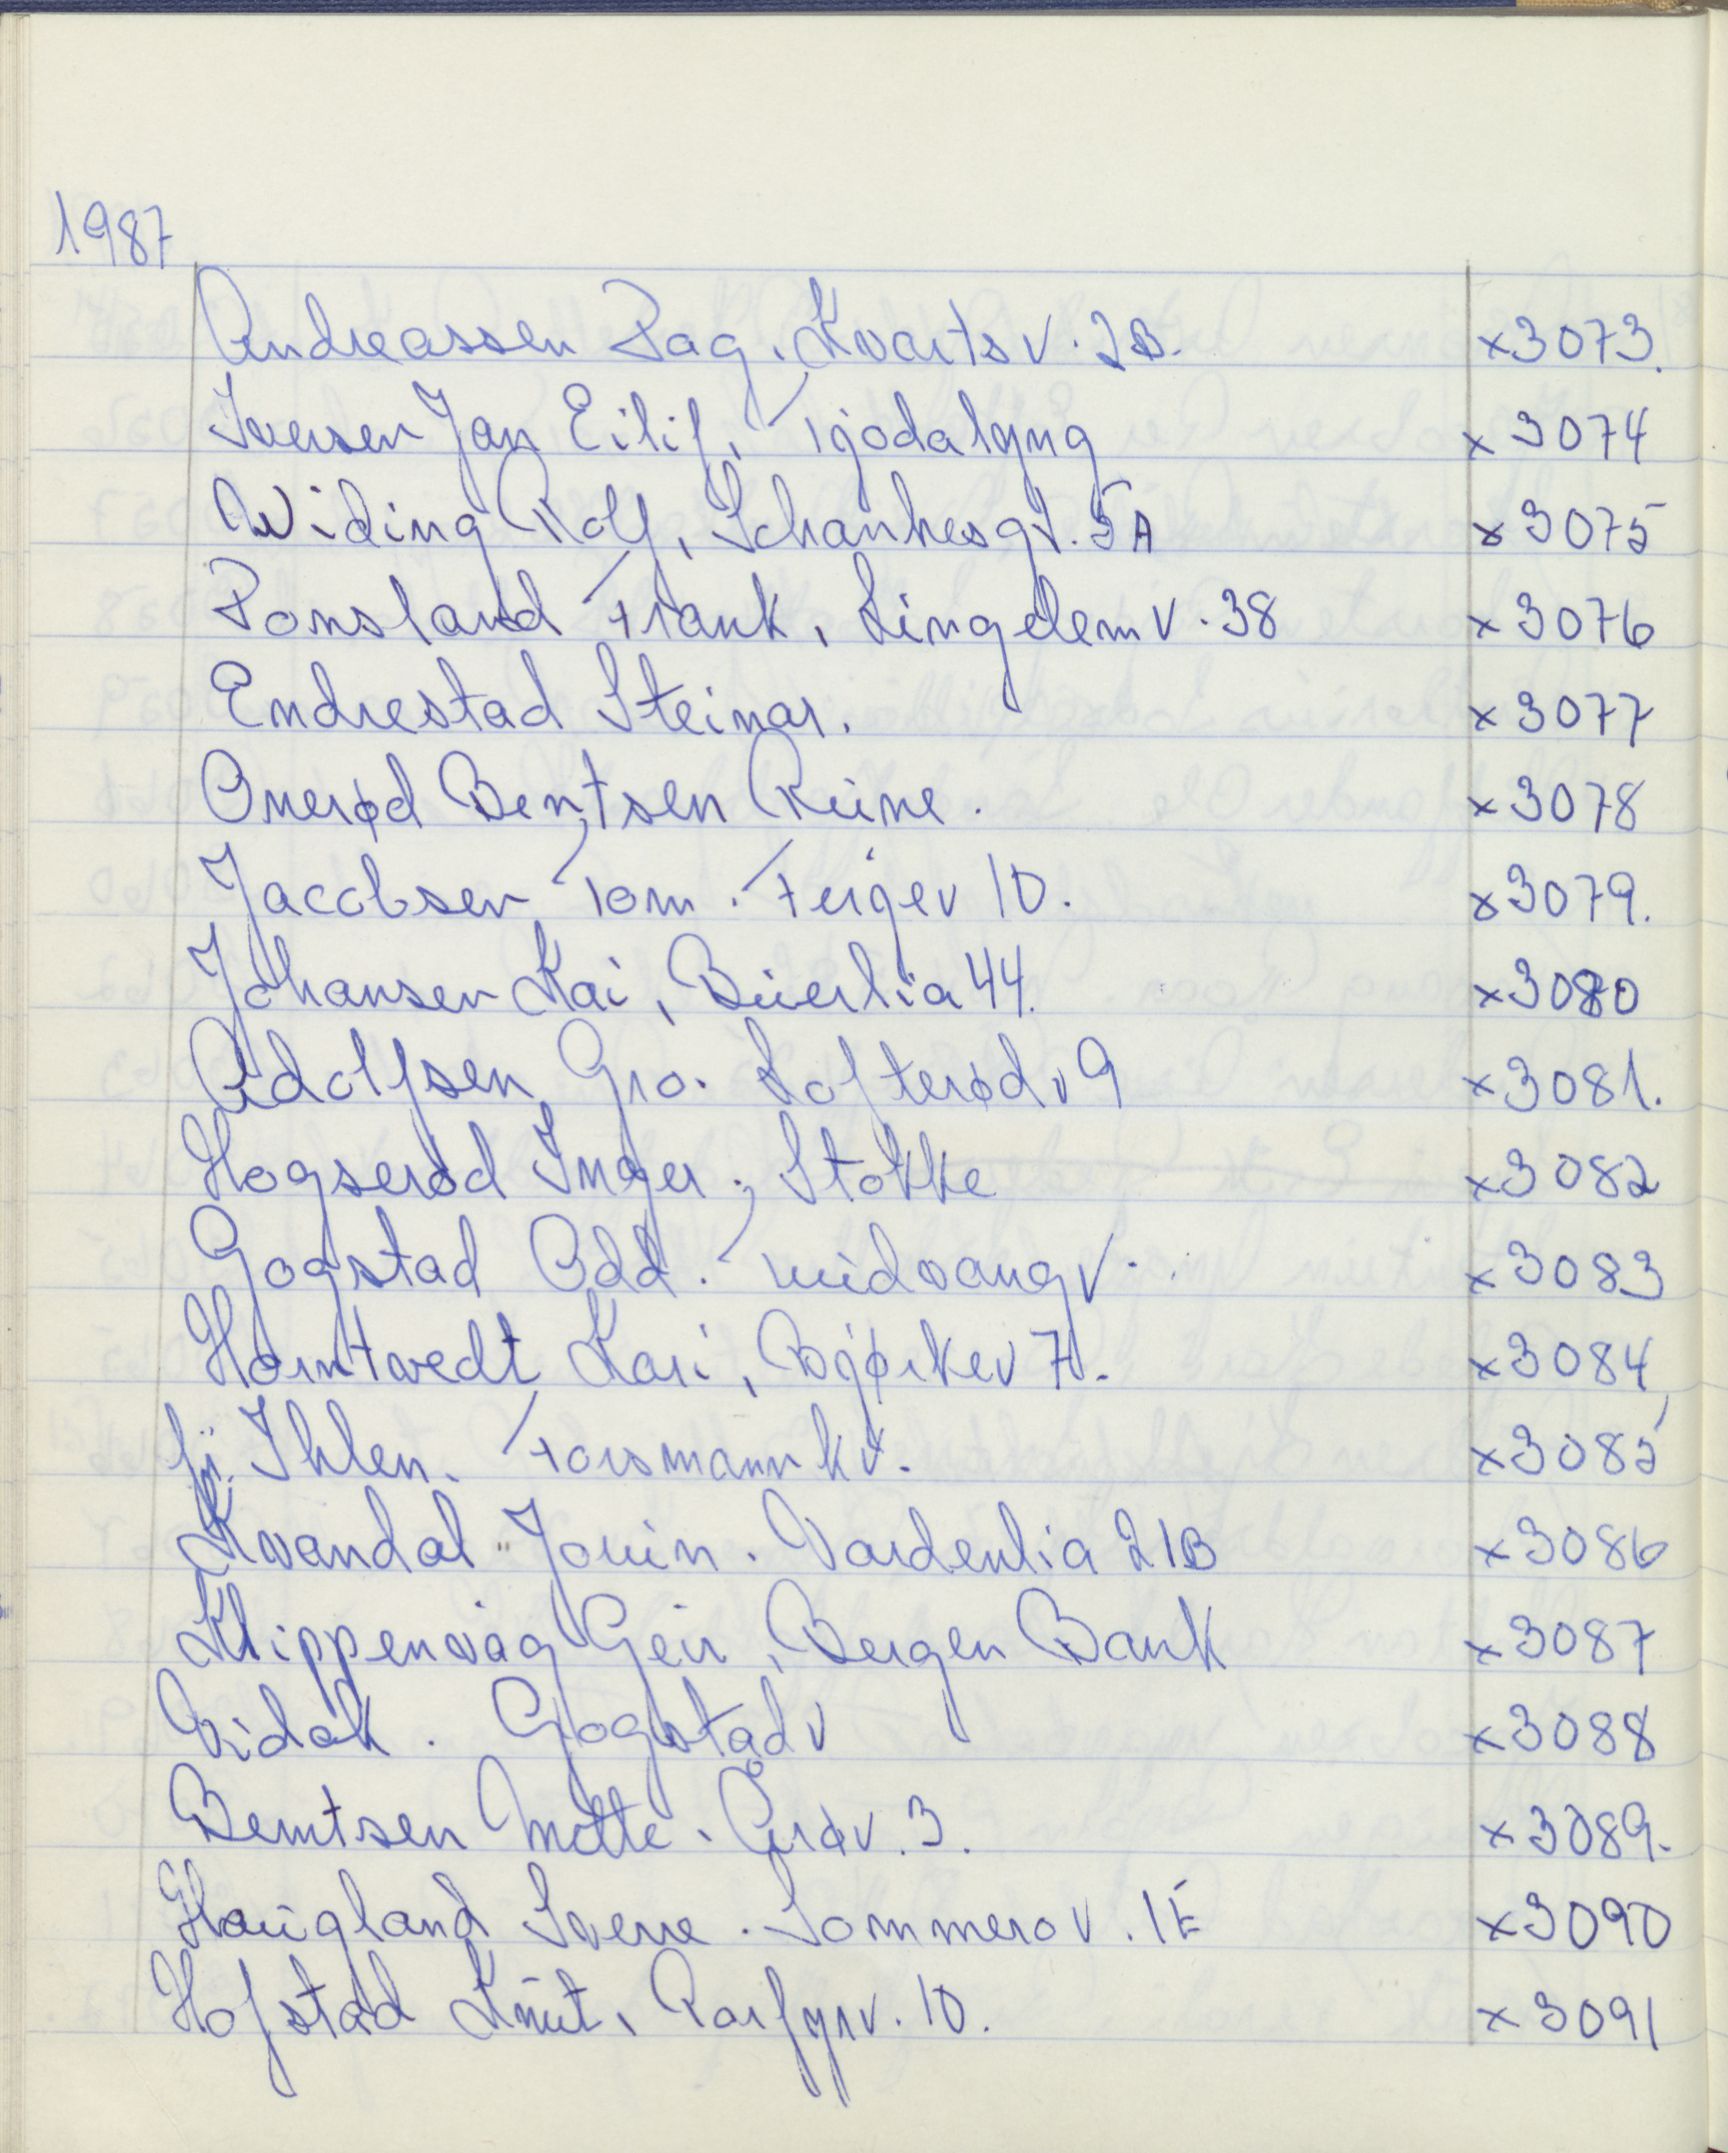 1987
Andreassen Dag. Kvartsv. 2B. x3073.
Iversen Jan Eilif, Tjodalyng x3074
Widing Rolf, Schankesgt. 5A x3075
Ponsland Frank, Lingelemv. 38 x3076
Endrestad Steinar. x3077
Omerød Berntsen Rune. x3078
Jacobsen Tom. Fergev 10. x3079.
Johansen Kai, Buerlia 44. x3080
Adolfsen Gro. Lofterødv 9 x3081.
Hogserød Inger, Stokke x3082
Gogstad Odd. Midvangv. x3083
Horntvedt Kari, Bjørkev 7. x3084
Ihlen. Forsmannkv. x3085
Kvandal Jouin. Vardenlia 21B x3086
Klippenvåg Geir, Bergen Bank x3087
Vidak. Gogstadv x3088
Berntsen Mette. Årøv. 3. x3089.
Haugland Sverre. Sommerov. 1E x3090
Hofstad Knut, Porfyrv. 10. x3091